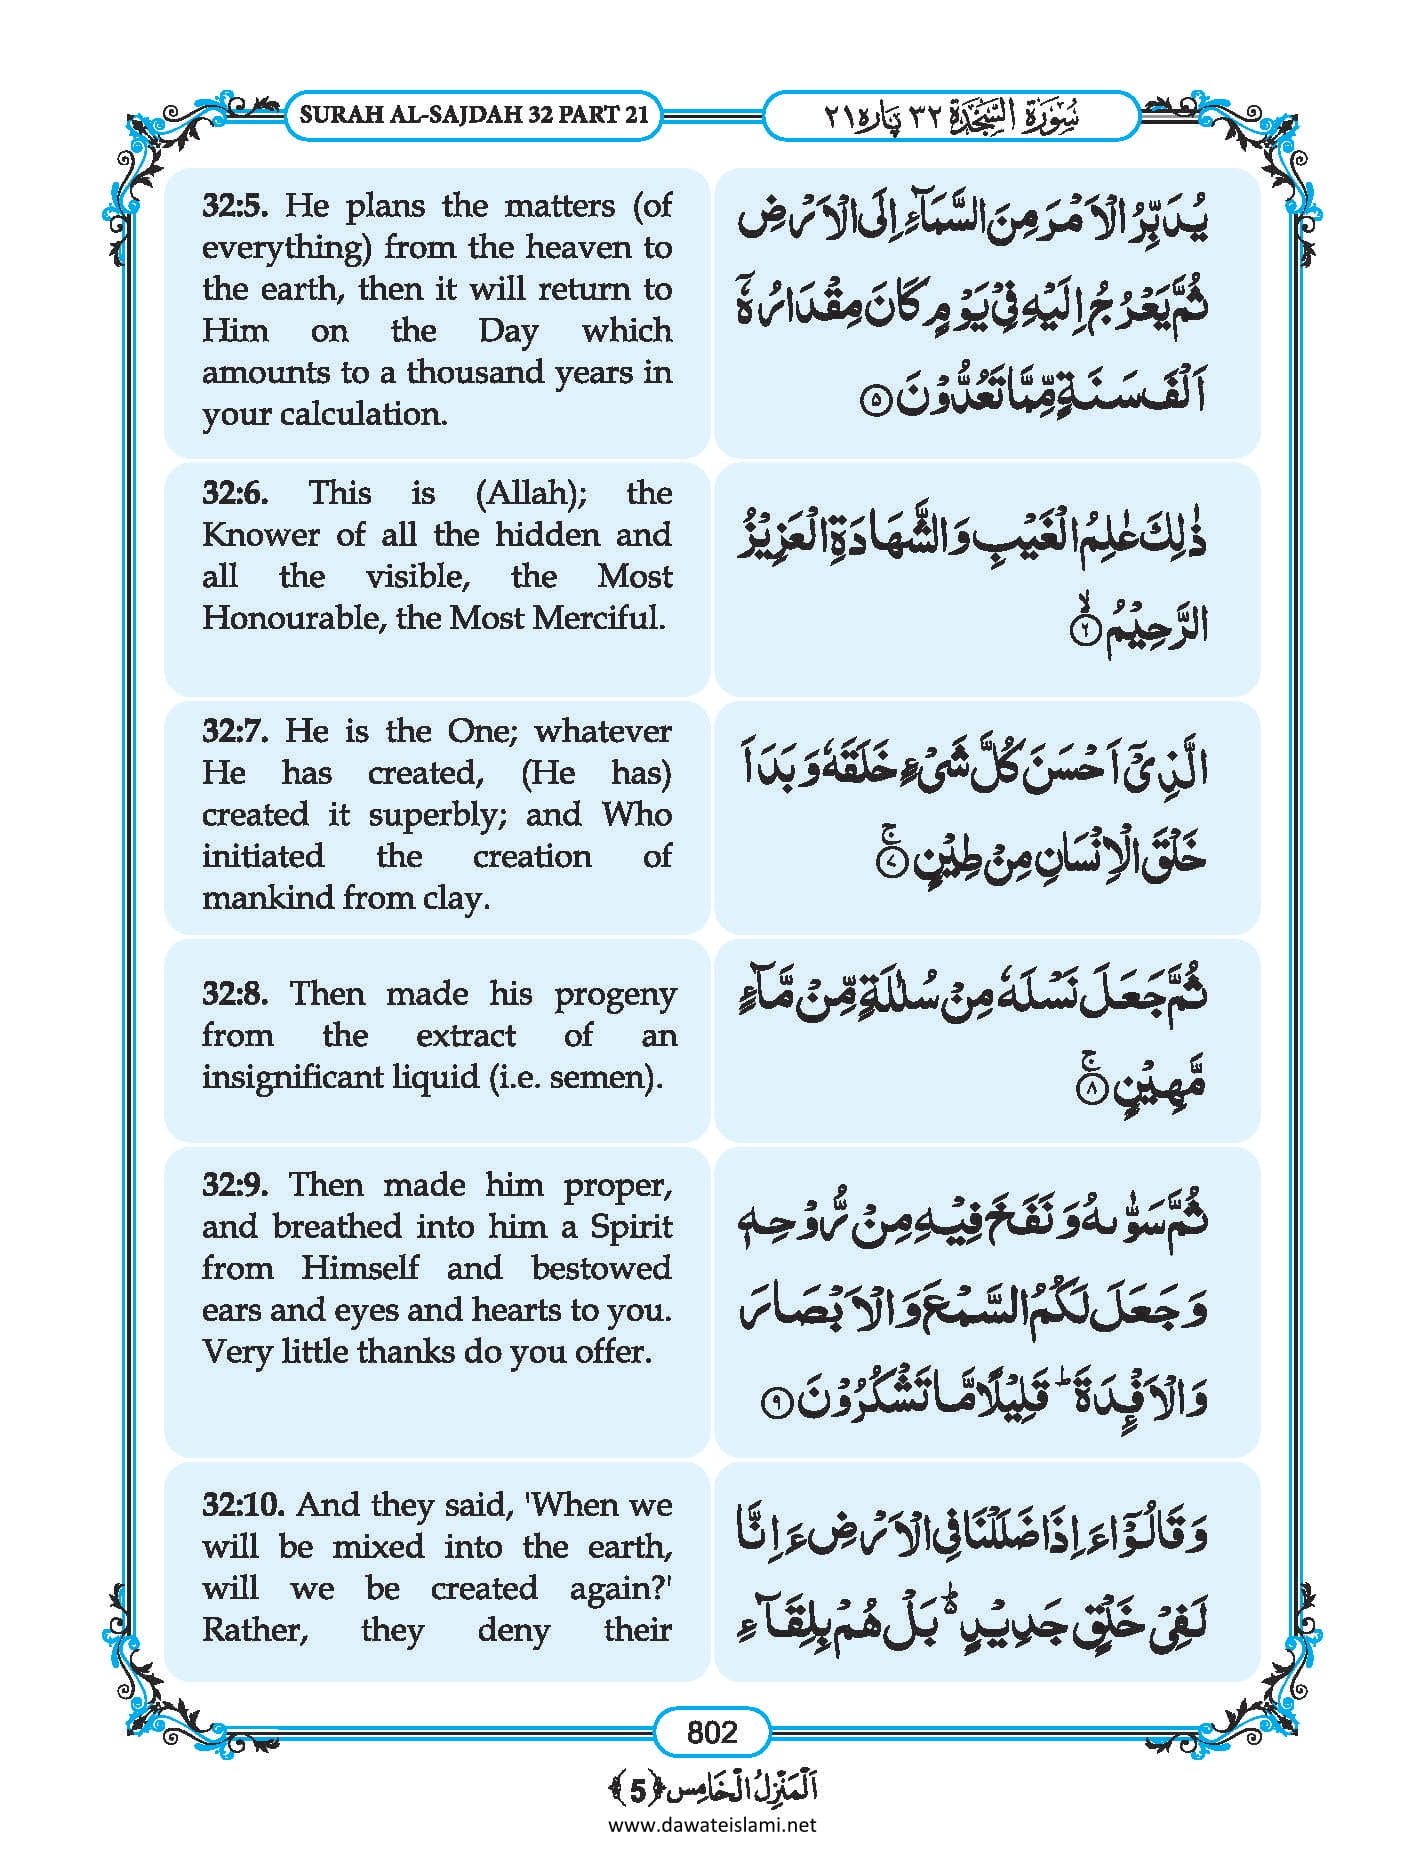 SURAH AL-SAJDAH 32 PART 21
سُوْرَةُ السَّجْدَة ٣٢ پاره ٢١
32:5. He plans the matters (of
everything) from the heaven to
the earth, then it will return to
Him on the Day which
amounts to a thousand years in
your calculation.
يُدَبِّرُ الْاَمْرَ مِنَ السَّمَآءِ اِلَى الْاَرْضِ
ثُمَّ يَعْرُجُ اِلَيْهِ فِیْ يَوْمٍ كَانَ مِقْدَارُهٗۤ
اَلْفَ سَنَةٍ مِّمَّا تَعُدُّوْنَ ﴿۵﴾
32:6. This is (Allah); the
Knower of all the hidden and
all the visible, the Most
Honourable, the Most Merciful.
ذٰلِكَ عٰلِمُ الْغَيْبِ وَالشَّهَادَةِ الْعَزِيْزُ
الرَّحِيْمُ ﴿ۙ۶﴾
32:7. He is the One; whatever
He has created, (He has)
created it superbly; and Who
initiated the creation of
mankind from clay.
الَّذِیْۤ اَحْسَنَ كُلَّ شَیْءٍ خَلَقَهٗ وَ بَدَاَ
خَلْقَ الْاِنْسَانِ مِنْ طِيْنٍ ﴿ۚ۷﴾
32:8. Then made his progeny
from the extract of an
insignificant liquid (i.e. semen).
ثُمَّ جَعَلَ نَسْلَهٗ مِنْ سُلٰلَةٍ مِّنْ مَّآءٍ
مَّهِيْنٍ ﴿ۚ۸﴾
32:9. Then made him proper,
and breathed into him a Spirit
from Himself and bestowed
ears and eyes and hearts to you.
Very little thanks do you offer.
ثُمَّ سَوّٰىهُ وَ نَفَخَ فِيْهِ مِنْ رُّوْحِهٖ
وَ جَعَلَ لَكُمُ السَّمْعَ وَ الْاَبْصَارَ
وَ الْاَفْـِٕدَةَ ؕ قَلِيْلًا مَّا تَشْكُرُوْنَ ﴿۹﴾
32:10. And they said, 'When we
will be mixed into the earth,
will we be created again?'
Rather, they deny their
وَ قَالُوْۤا ءَاِذَا ضَلَلْنَا فِی الْاَرْضِ ءَاِنَّا
لَفِیْ خَلْقٍ جَدِيْدٍ ۬ؕ بَلْ هُمْ بِلِقَآءِ
802
اَلْمَنْزِلُ الْخَامِس ﴿5﴾
www.dawateislami.net